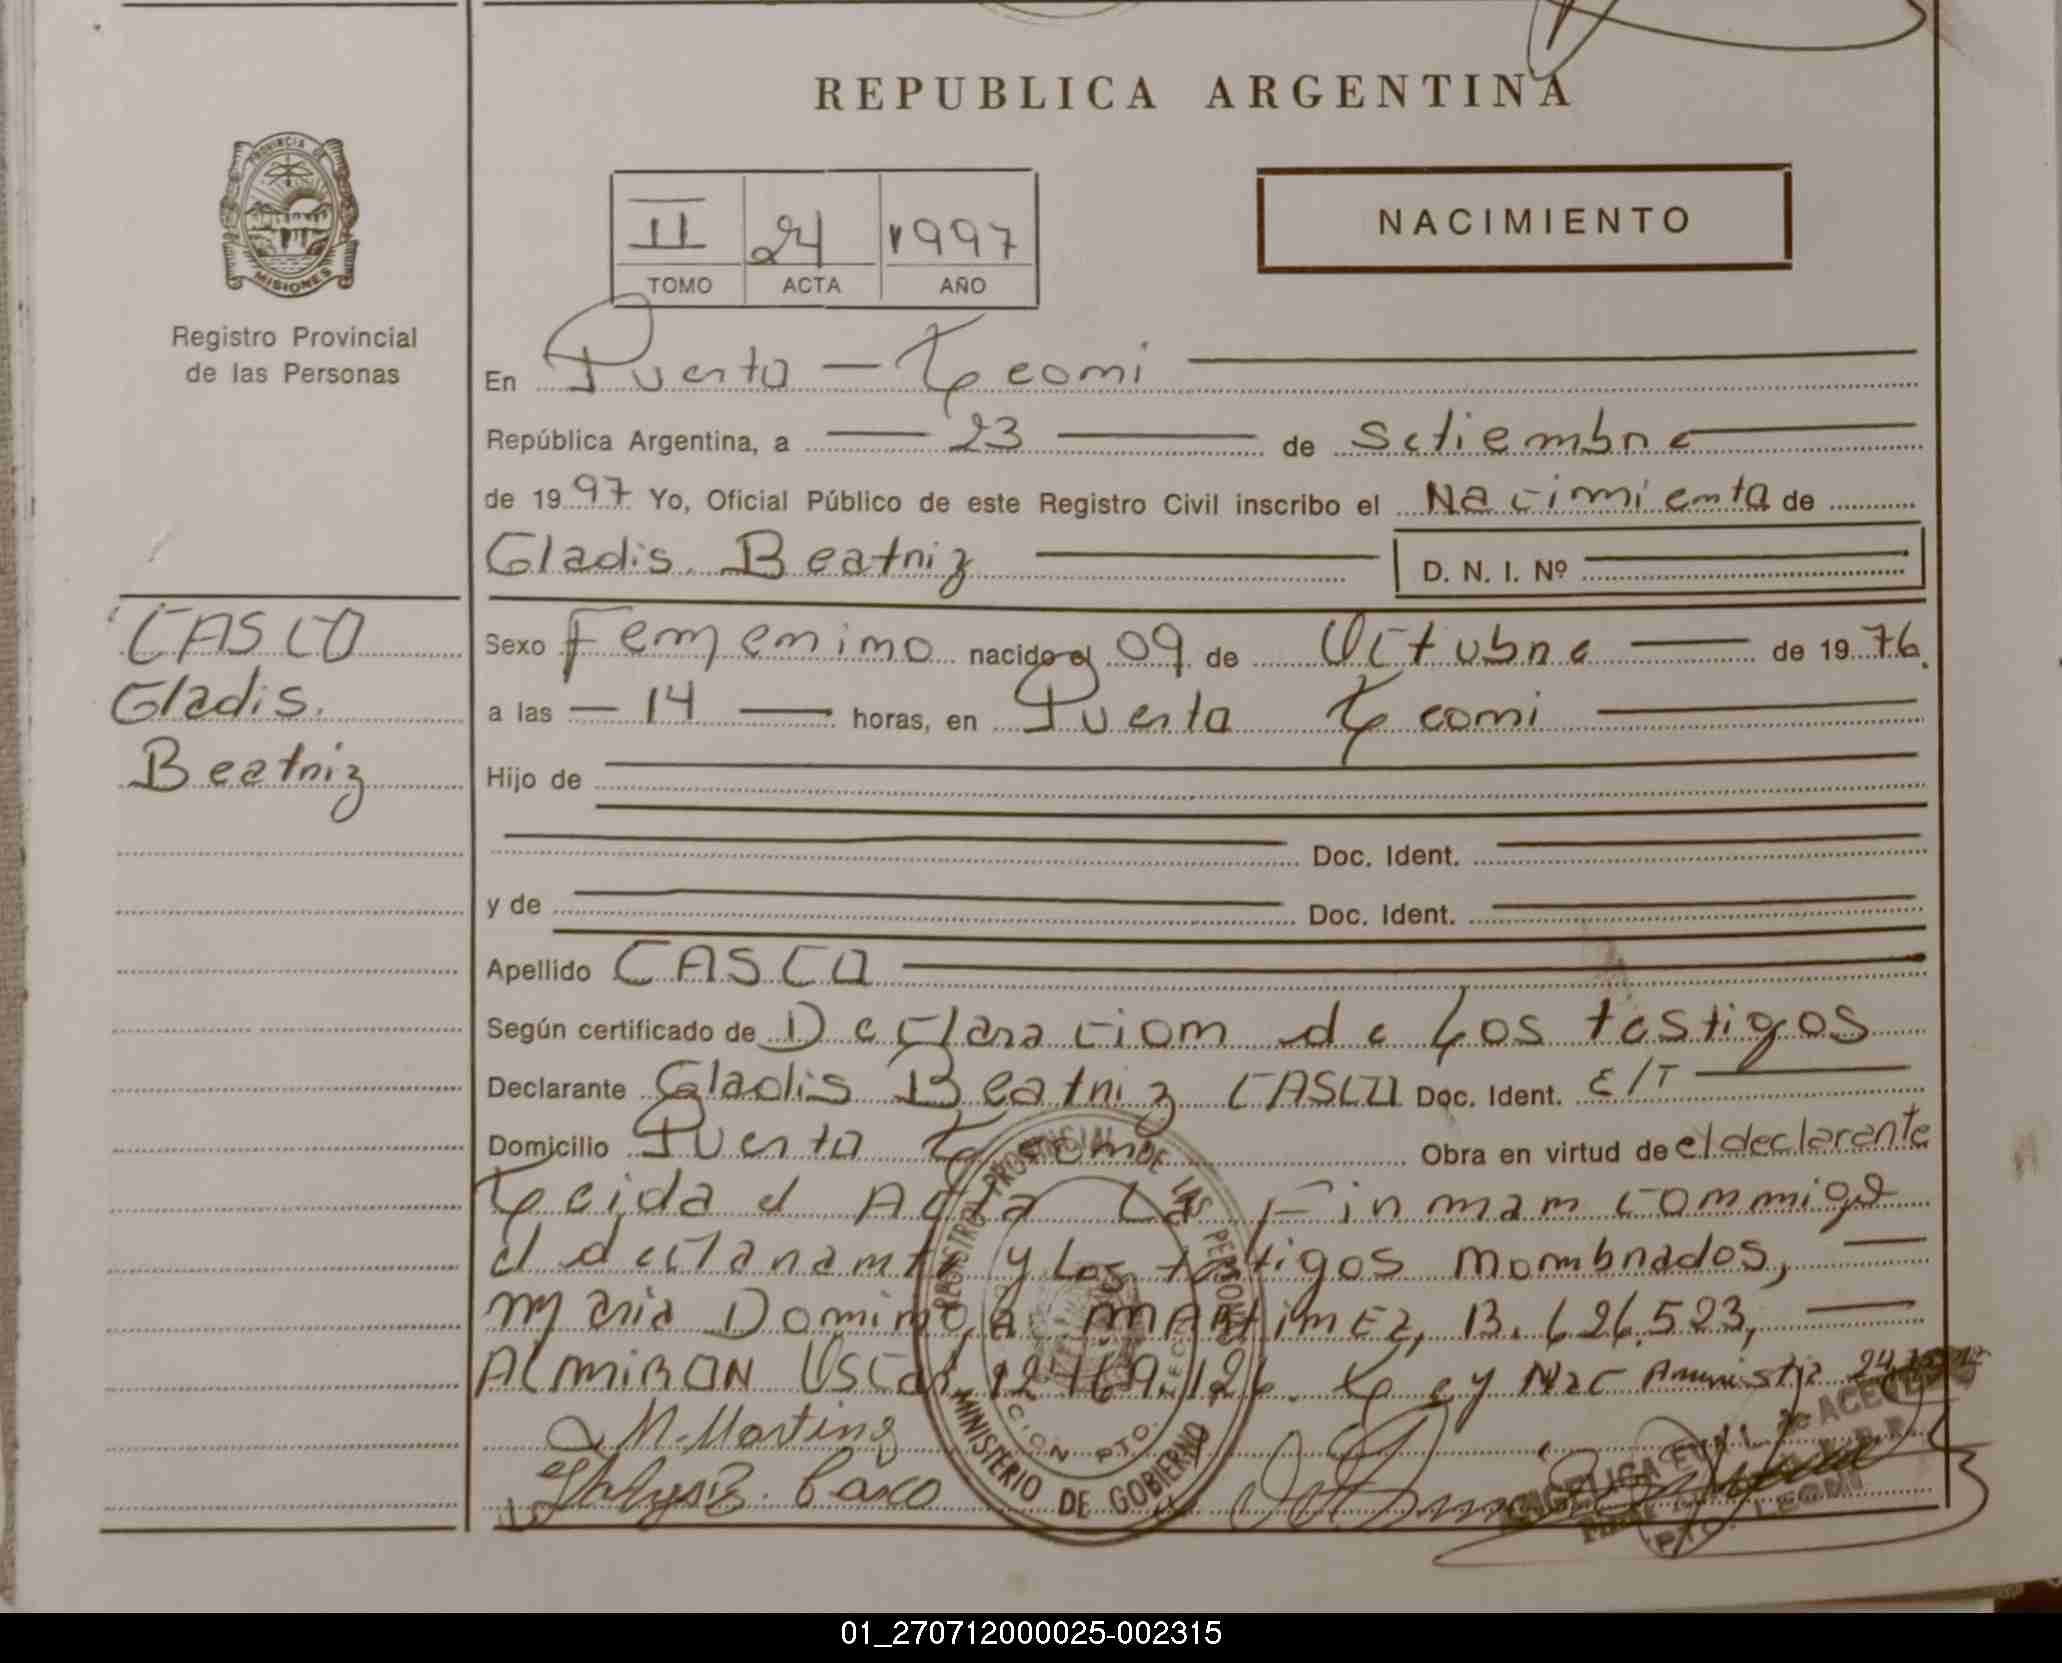 REPUBLICA ARGENTINA
PROVINCIA DE
MISIONES
Registro Provincial
de las Personas
II 24 1997
TOMO ACTA AÑO
NACIMIENTO
En Puerto - Leoni
República Argentina, a 23 de Setiembre
de 1997 Yo, Oficial Público de este Registro Civil inscribo el Nacimiento de
Gladis Beatriz D. N. I. Nº
CASCO
Gladis
Beatriz
Sexo Femenino nacido el 09 de Octubre de 1976
a las 14 horas, en Puerto Leoni
Hijo de
Doc. Ident.
y de Doc. Ident.
Apellido CASCO
Según certificado de Declaracion de Los testigos
Declarante Gladis Beatriz CASCO Doc. Ident. E/T
Domicilio Puerto Leoni Obra en virtud de el declarante
Leida el Acta La Firman conmigo
el declarante y Los testigos nombrados,
Maria Dominga MARTINEZ, 13.626.523,
ALMIRON OSCAR 12.169.126. Ley Nac Amnistia
M. Martinez
Casco
REGISTRO PROVINCIAL DE LAS PERSONAS
MINISTERIO DE GOBIERNO
ANGELICA de ACEVEDO
PTO. LEONI
01_270712000025-002315